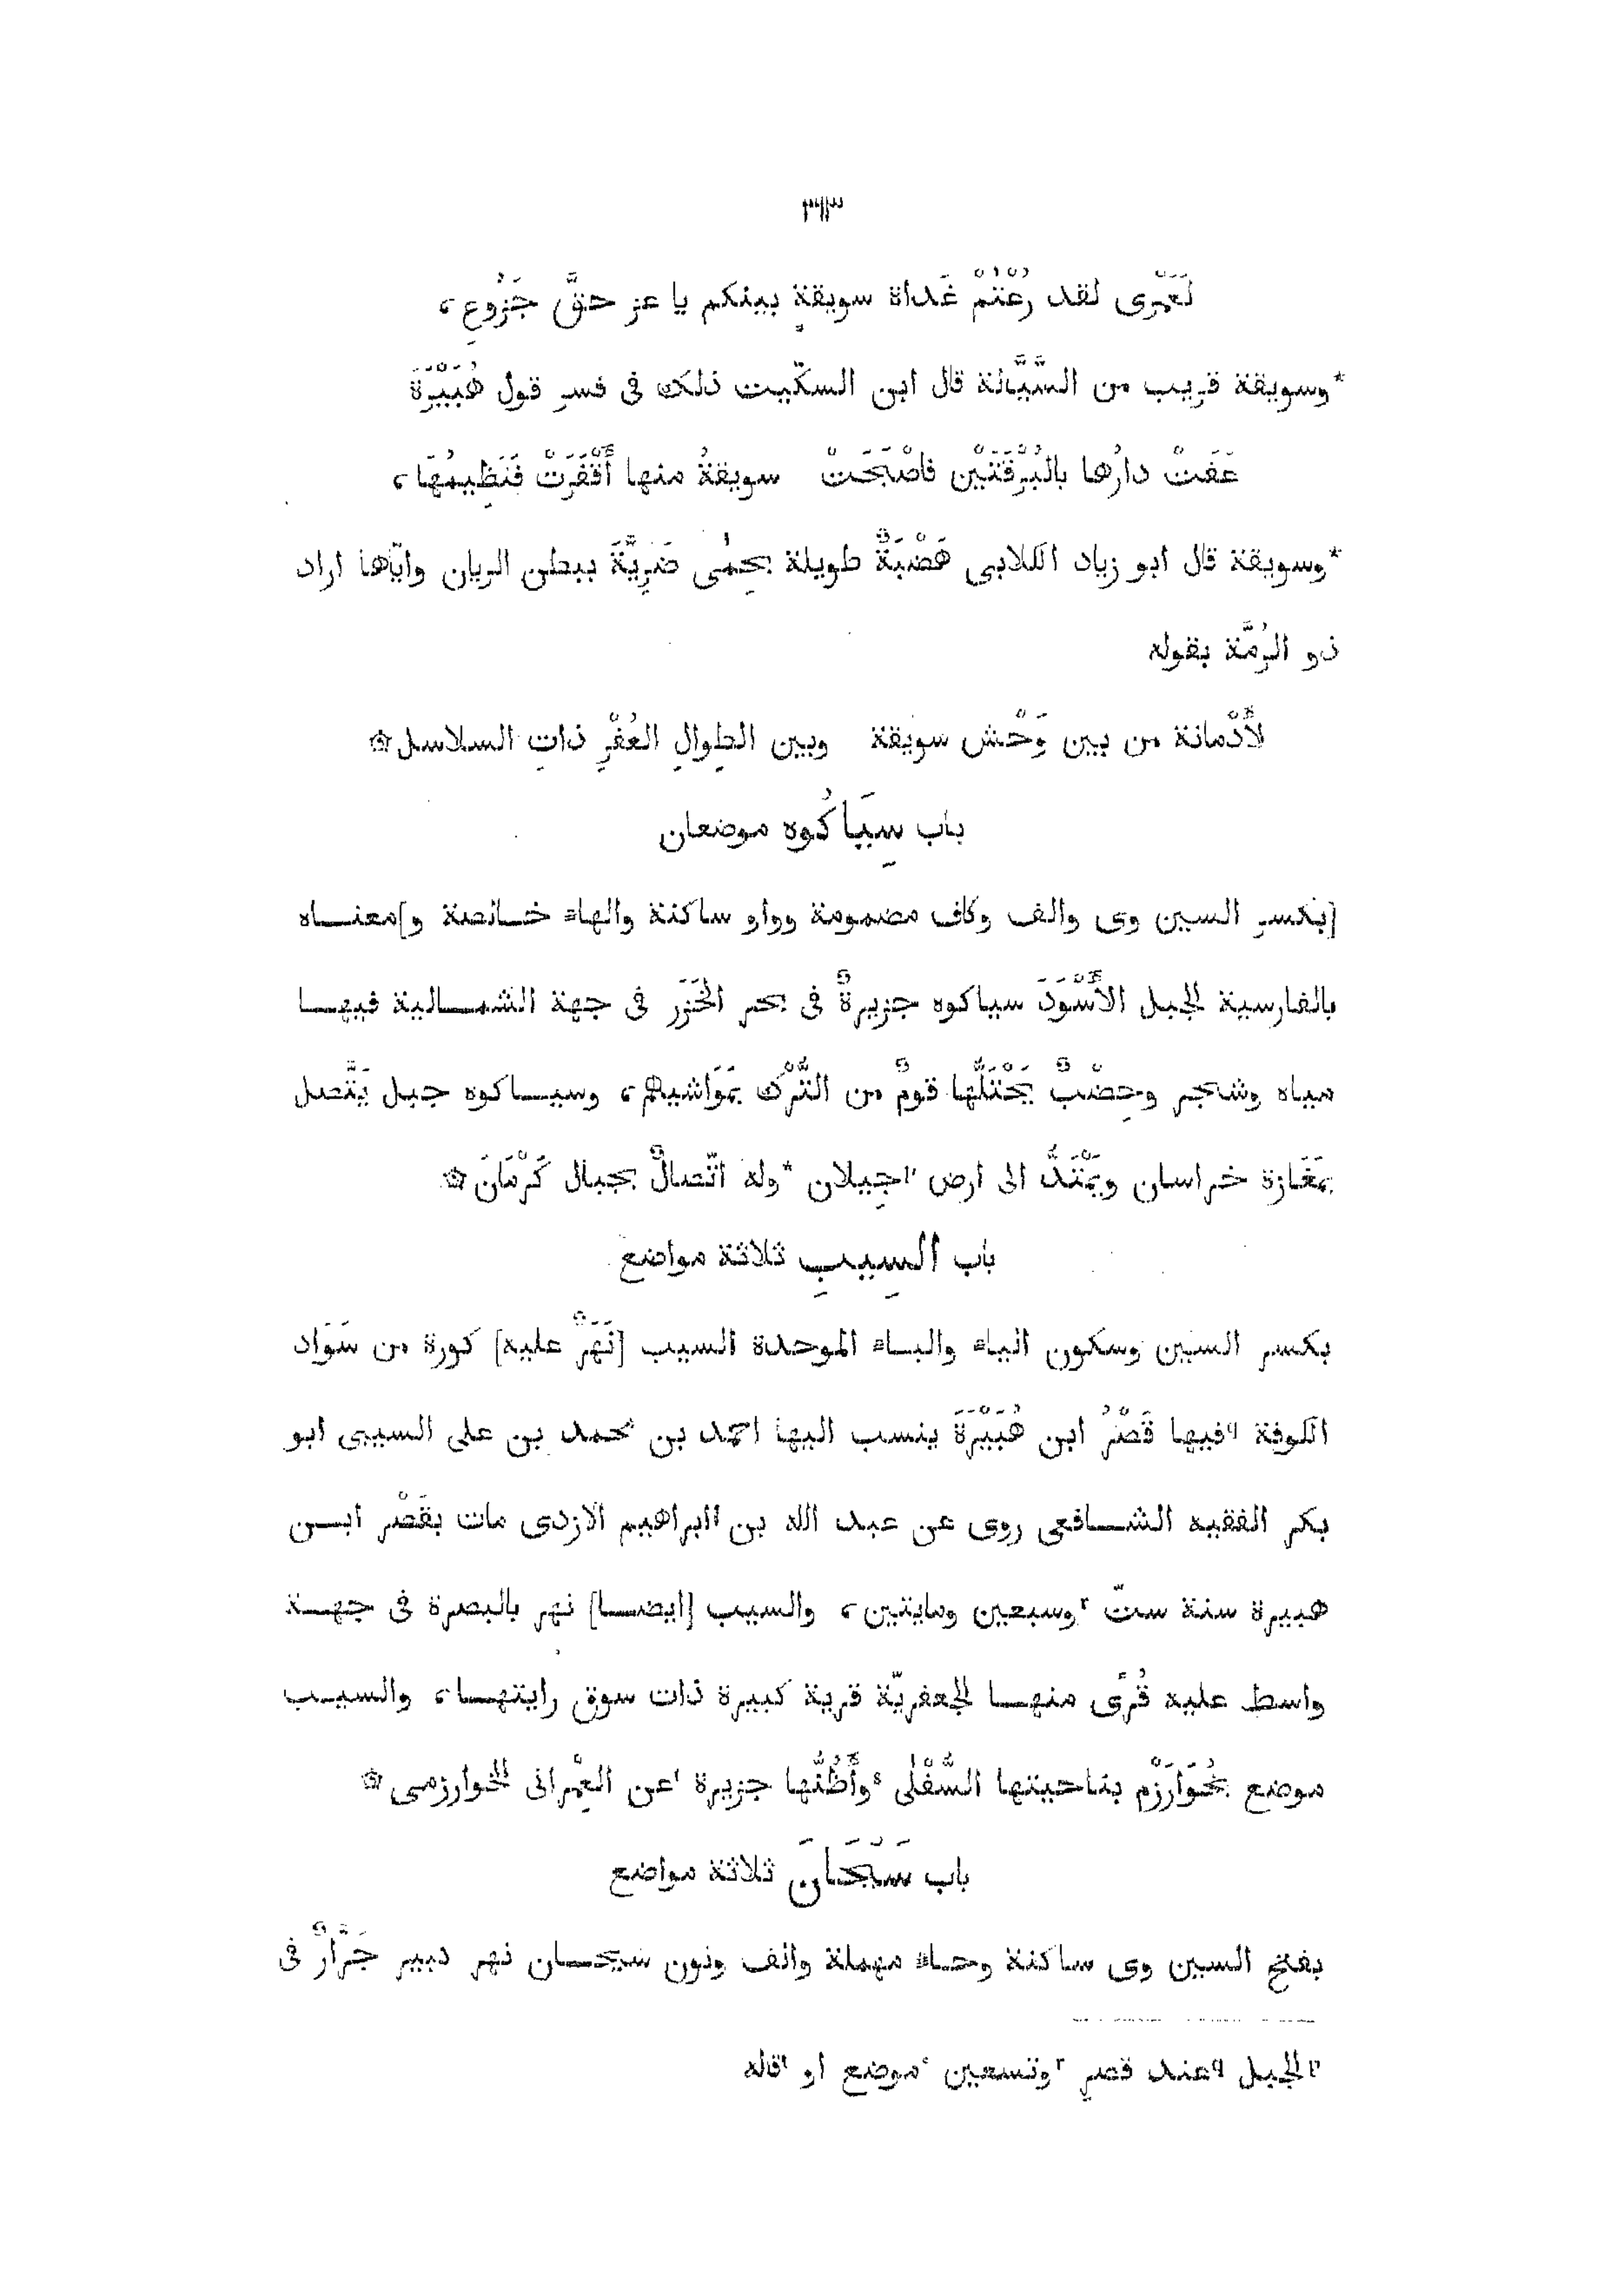 ٣٦٣
لَعَمْرى لقد رُعْتُمْ غَداة سويقةٍ ببينكم يا عز حقَّ جَزُوعِ،
*وسويقة قريب من السَّيَّالة قال ابن السكّيت ذلك فى فسر قول هُبَيْرَةَ
عَفَتْ دارُها بالبُرْقَتَيْن فاصْبَحَتْ سويقةُ منها أَقْفَرَتْ فَنَظِيمُهَا،
*وسويقة قال ابو زياد الكلابى هَضْبَةٌ طويلة بحِمٰى ضَرِيَّةَ ببطن الريان وايّاها اراد
ذو الرُمَّة بقوله
لأَدْمانة من بين وَحْش سويقة وبين الطِوالِ العُفْرِ ذاتِ السلاسل۞
باب سِيَاكُوه موضعان
[بكسر السين وى والف وكاف مضمومة وواو ساكنة والهاء خالصة و]معناه
بالفارسية الجبل الأَسْوَدَ سياكوه جزيرةٌ فى بحر الخَزَر فى جهة الشمالية فيها
مياه وشجر وخِصْبٌ يَحْتَلُّها قومٌ من التُّرْك بمَوَاشيهم، وسياكوه جبل يَتَّصل
بمَفَازة خراسان ويَمْتَدُّ الى ارض ¹¹جِيلان *وله اتّصالٌ بجبال كَرْمَانَ۞
باب السِيبِ ثلاثة مواضع
بكسر السين وسكون الياء والباء الموحدة السيب [نَهَرٌ عليه] كورة من سَوَاد
الكوفة ٩فيها قَصْرُ ابن هُبَيْرَةَ ينسب اليها احمد بن محمد بن على السيبى ابو
بكر الفقيه الشافعى روى عن عبد الله بن ابراهيم الازدى مات بقَصْر ابن
هبيرة سنة ستّ ʳوسبعين ومايتين، والسيب [ايضا] نهر بالبصرة فى جهة
واسط عليه قُرًى منها الجعفريّة قرية كبيرة ذات سوق رايتها، والسيب
موضع بخُوَارَزْم بناحيتها السُّفْلٰى ˢوأَظُنُّها جزيرة ᵗعن العِمْرانى الخوارزمى۞
باب سَيْحَانَ ثلاثة مواضع
بفتح السين وى ساكنة وحاء مهملة والف ونون سيحان نهر كبير جَرَّارٌ فى
ᵖالجبل ٩عند قصر ʳوتسعين ˢموضع او ᵗقاله